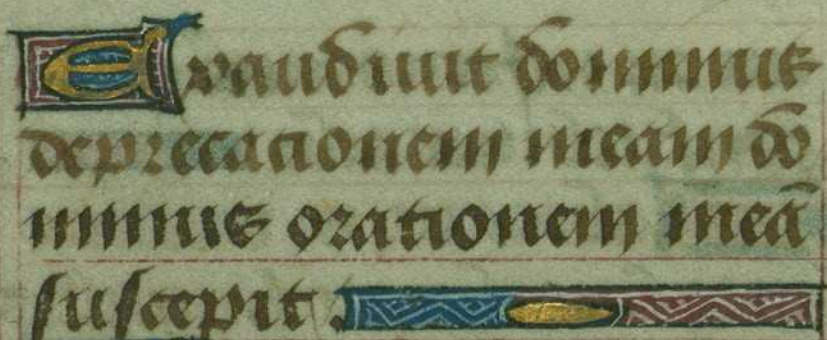 Exaudivit dominus
deprecacionem meam do
minus orationem meā
suscepit.